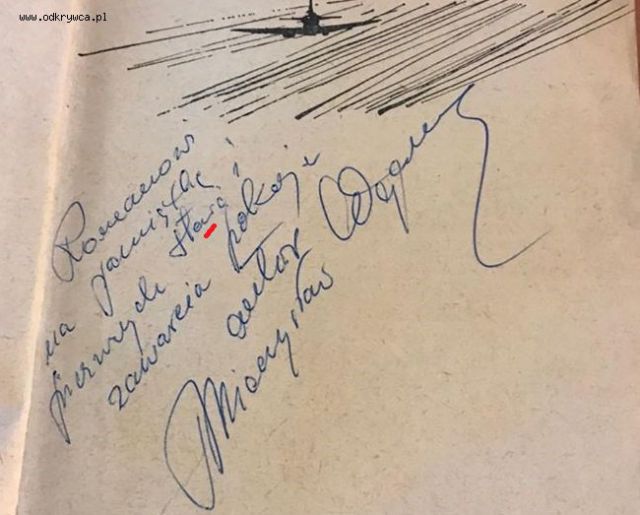 www.odkrywca.pl
Romanowi
na pamiątkę
pierwszych starć i
zawarcia pokoju
autor
Mieczysław